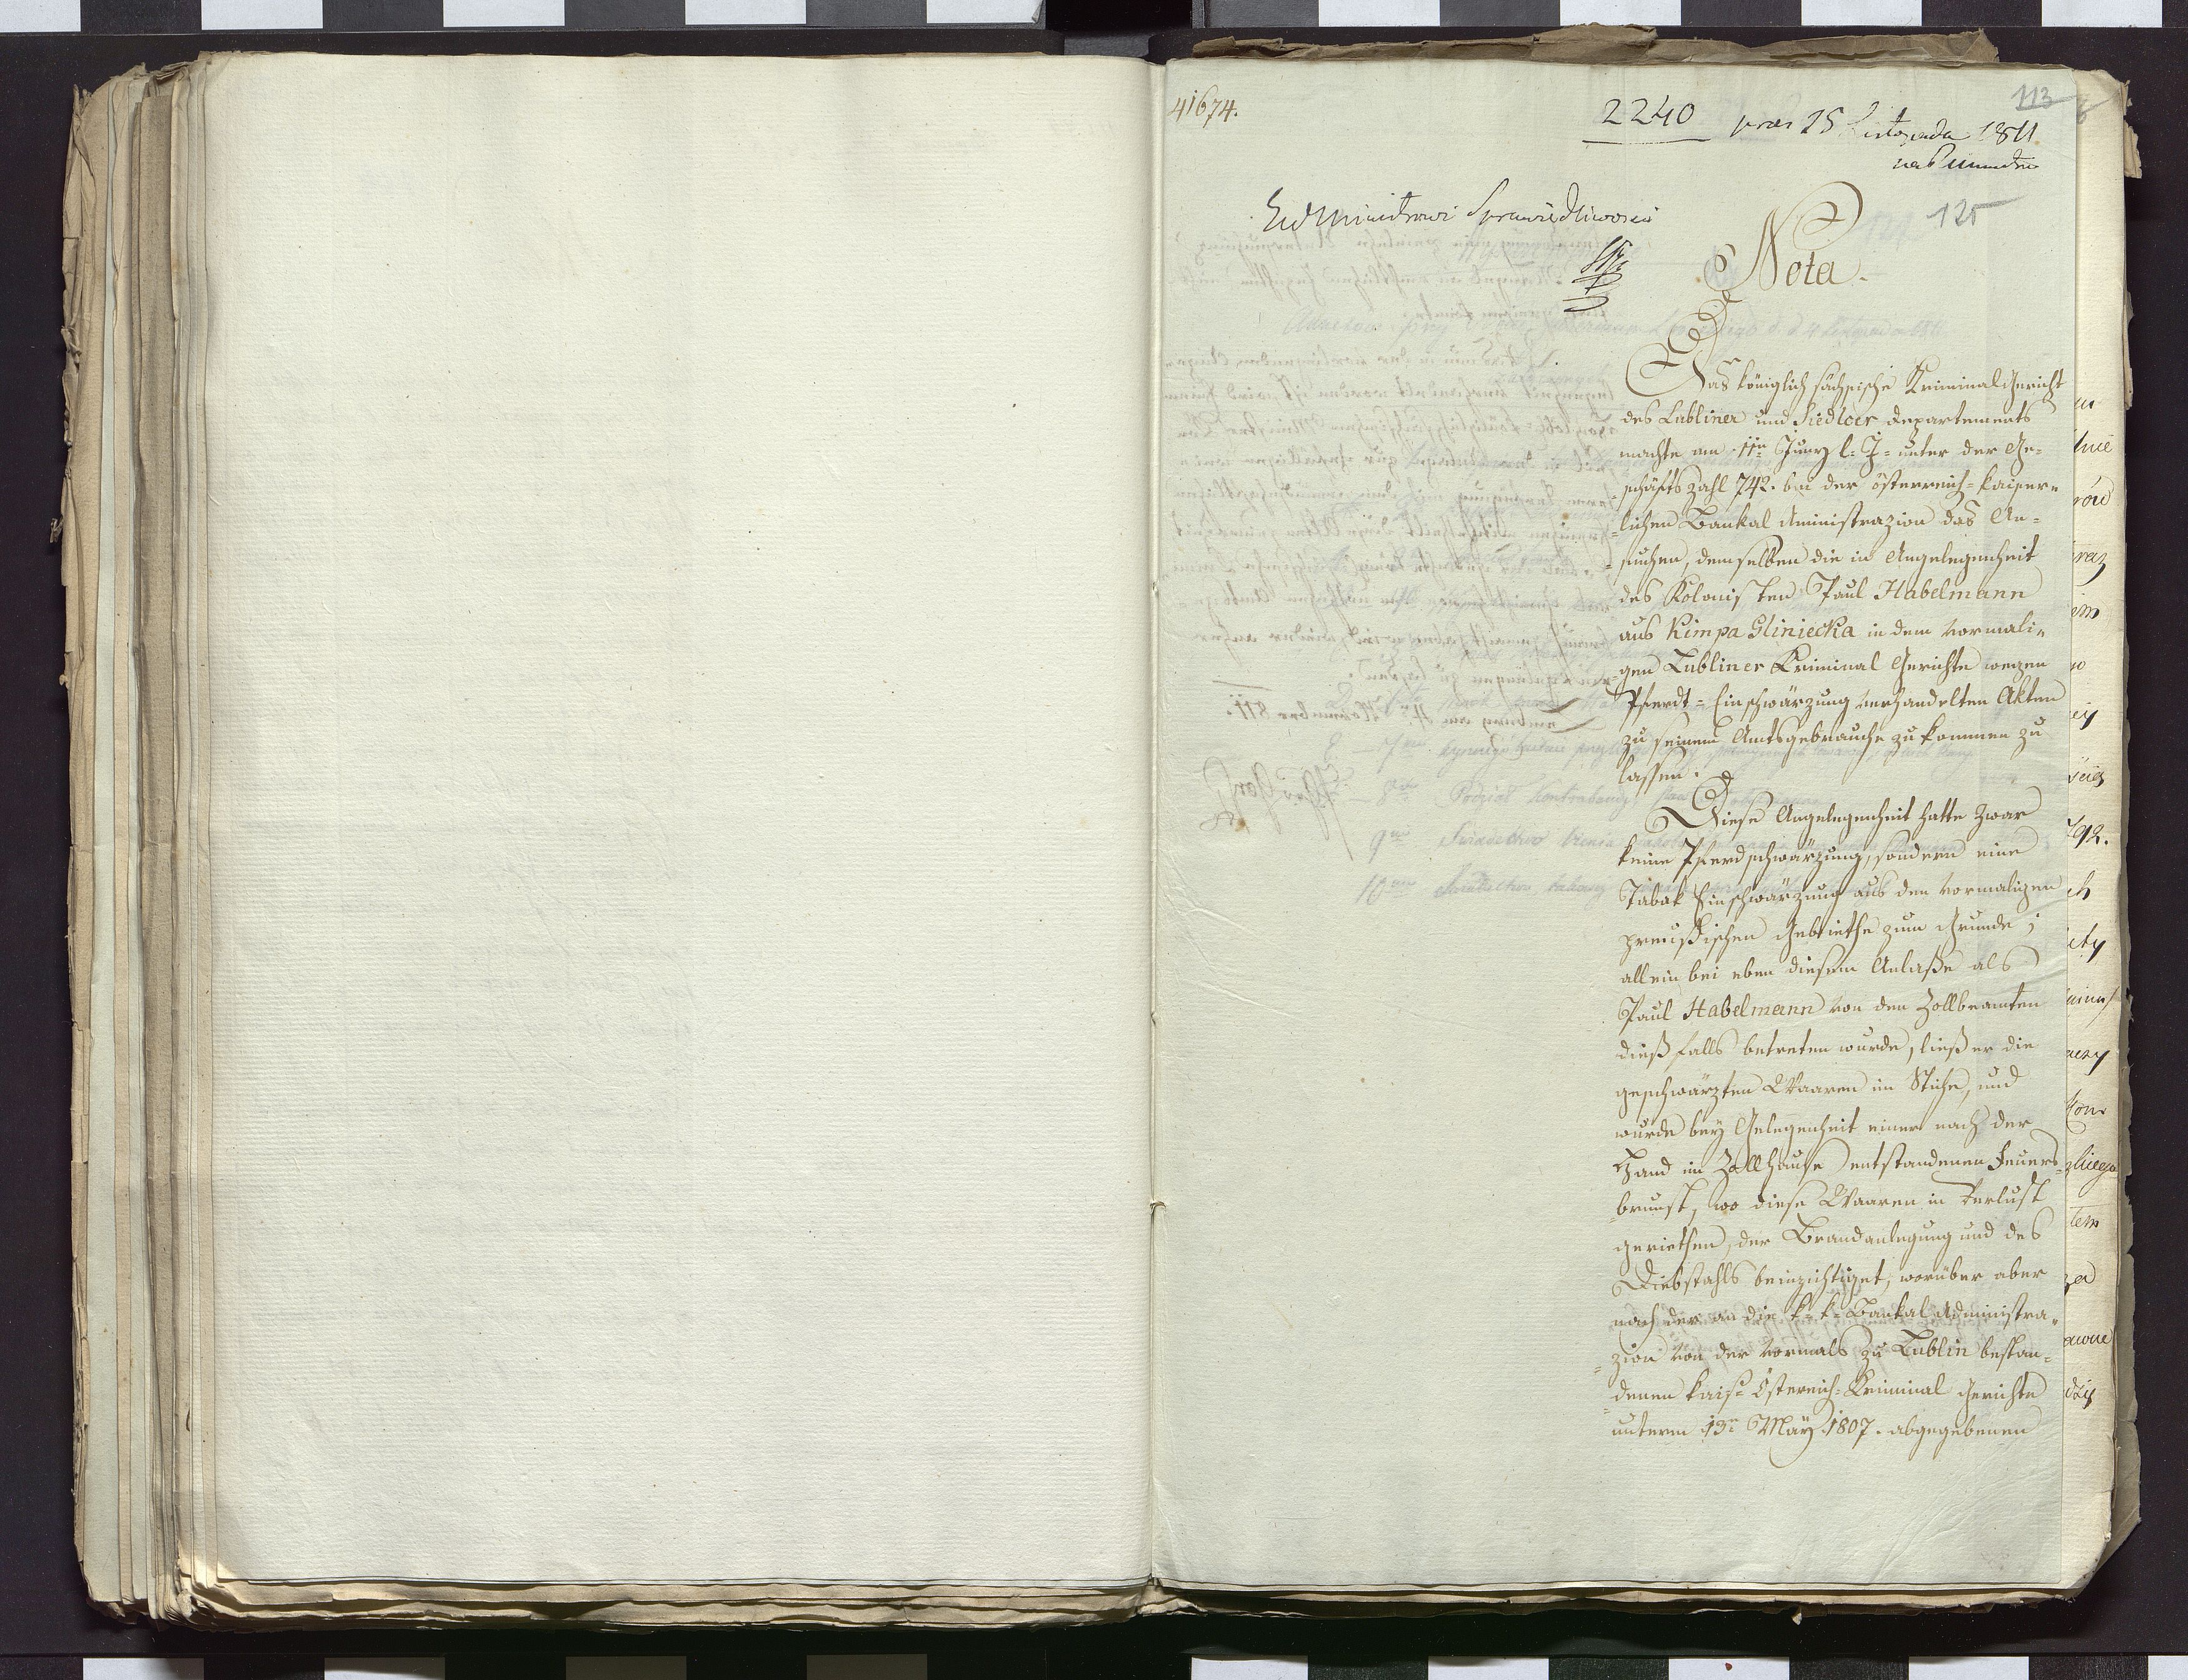 41674.
113
2240 praes 15 Listopada 1811
125
Ministrowi Sprawiedliwości
Nota.
Das königlich sächsische Kriminal Gericht
des Lubliner und Siedlcer Departements
machte am 11n Juny l: J: unter der Ge-
schäfts Zahl 742. bei der österreich-kaiser-
lichen Bankal Aministrazion das An-
suchen, demselben die in Angelegenheit
des Kolonisten Paul Habelmann
aus Kimpa Gliniecka in dem vormali-
gen Lubliner Kriminal Gerichte wegen
Pferdt-Einschwärzung verhandelten Akten
zu seinem Amtsgebrauche zukommen zu
lassen.
Diese Angelegenheit hatte zwar
keine Pferdschwärzung, sondern eine
Tabak Einschwärzung aus den vormaligen
preußischen Gebiethe zum Grunde;
allein bei eben diesem Anlaße als
Paul Habelmann von den Zollbeamten
dießfalls betreten wurde, ließ er die
geschwärzten Waaren im Stiche, und
wurde bey Gelegenheit einer nach der
Hand im Zollhause entstandenen Feuers-
brunst, wo diese Waaren in Verlust
geriethen, der Brandanlegung und des
Diebstahls beinzichtiget, worüber aber
nach der an die k. k. Bankal Administra-
zion von der vormals zu Lublin bestan-
denen kais: Östereich: Kriminal Gerichte
unterm 13n May 1807. abgegebenen